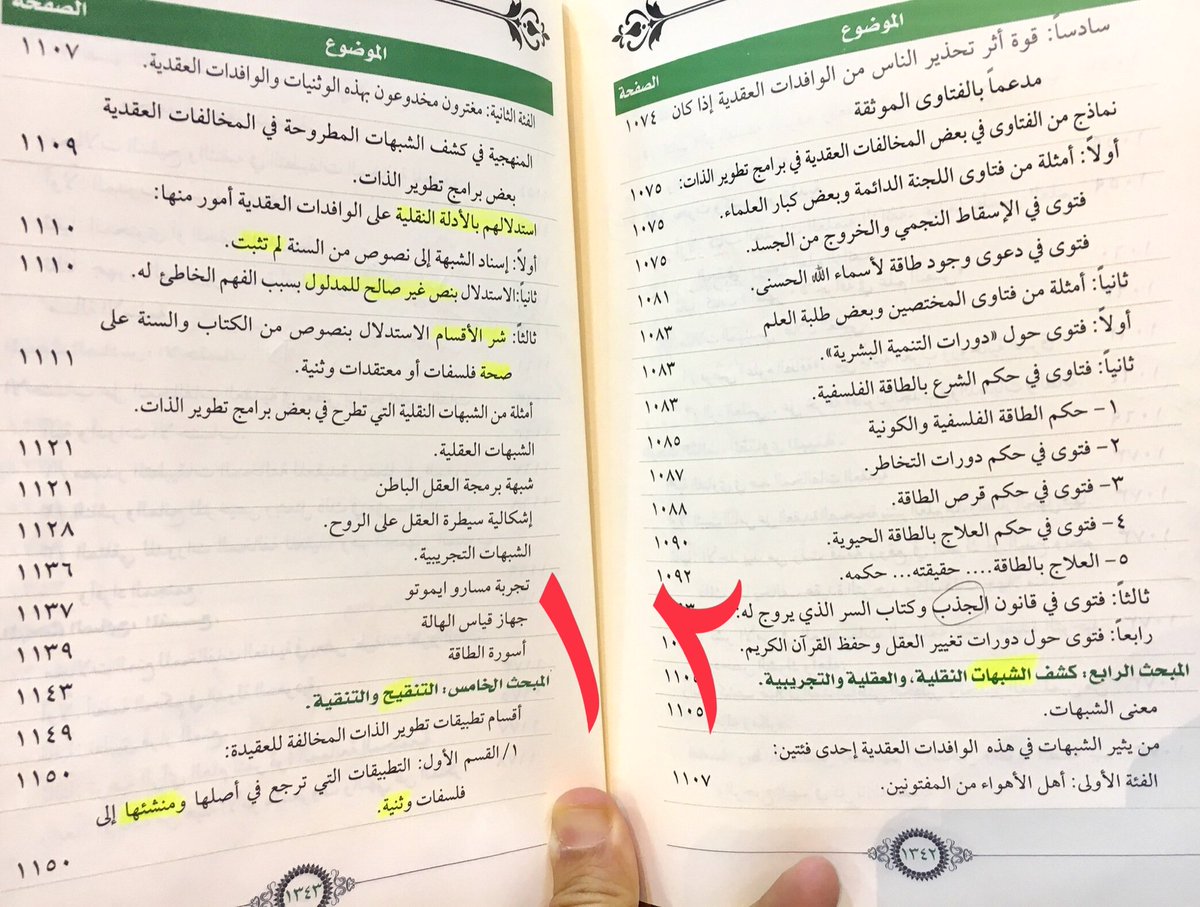 الموضوع
الصفحة
سادساً: قوة أثر تحذير الناس من الوافدات العقدية إذا كان
مدعماً بالفتاوى الموثقة ١٠٧٤
نماذج من الفتاوى في بعض المخالفات العقدية في برامج تطوير الذات: ١٠٧٥
أولاً: أمثلة من فتاوى اللجنة الدائمة وبعض كبار العلماء. ١٠٧٥
فتوى في الإسقاط النجمي والخروج من الجسد. ١٠٧٥
فتوى في دعوى وجود طاقة لأسماء الله الحسنى. ١٠٨١
ثانياً: أمثلة من فتاوى المختصين وبعض طلبة العلم ١٠٨٣
أولاً: فتوى حول «دورات التنمية البشرية». ١٠٨٣
ثانياً: فتاوى في حكم الشرع بالطاقة الفلسفية. ١٠٨٣
١- حكم الطاقة الفلسفية والكونية ١٠٨٥
٢- فتوى في حكم دورات التخاطر. ١٠٨٧
٣- فتوى في حكم قرص الطاقة. ١٠٨٨
٤- فتوى في حكم العلاج بالطاقة الحيوية. ١٠٩٠
٥- العلاج بالطاقة.... حقيقته... حكمه. ١٠٩٢
ثالثاً: فتوى في قانون الجذب وكتاب السر الذي يروج له:
رابعاً: فتوى حول دورات تغيير العقل وحفظ القرآن الكريم.
المبحث الرابع: كشف الشبهات النقلية، والعقلية والتجريبية.
معنى الشبهات. ١١٠٥
من يثير الشبهات في هذه الوافدات العقدية إحدى فئتين:
الفئة الأولى: أهل الأهواء من المفتونين. ١١٠٧
١٣٤٢
١٢
الموضوع
الصفحة
الفئة الثانية: مغترون مخدوعون بهذه الوثنيات والوافدات العقدية. ١١٠٧
المنهجية في كشف الشبهات المطروحة في المخالفات العقدية
بعض برامج تطوير الذات. ١١٠٩
استدلالهم بالأدلة النقلية على الوافدات العقدية أمور منها:
أولاً: إسناد الشبهة إلى نصوص من السنة لم تثبت. ١١١٠
ثانياً:الاستدلال بنص غير صالح للمدلول بسبب الفهم الخاطئ له. ١١١٠
ثالثاً: شر الأقسام الاستدلال بنصوص من الكتاب والسنة على
صحة فلسفات أو معتقدات وثنية. ١١١١
أمثلة من الشبهات النقلية التي تطرح في بعض برامج تطوير الذات.
الشبهات العقلية. ١١٢١
شبهة برمجة العقل الباطن ١١٢١
إشكالية سيطرة العقل على الروح. ١١٢٨
الشبهات التجريبية. ١١٣٦
تجربة مسارو ايموتو ١١٣٧
جهاز قياس الهالة ١١٣٩
أسورة الطاقة ١١٤٣
المبحث الخامس: التنقيح والتنقية. ١١٤٩
أقسام تطبيقات تطوير الذات المخالفة للعقيدة: ١١٥٠
١/ القسم الأول: التطبيقات التي ترجع في أصلها ومنشئها إلى
فلسفات وثنية. ١١٥٠
١٣٤٣